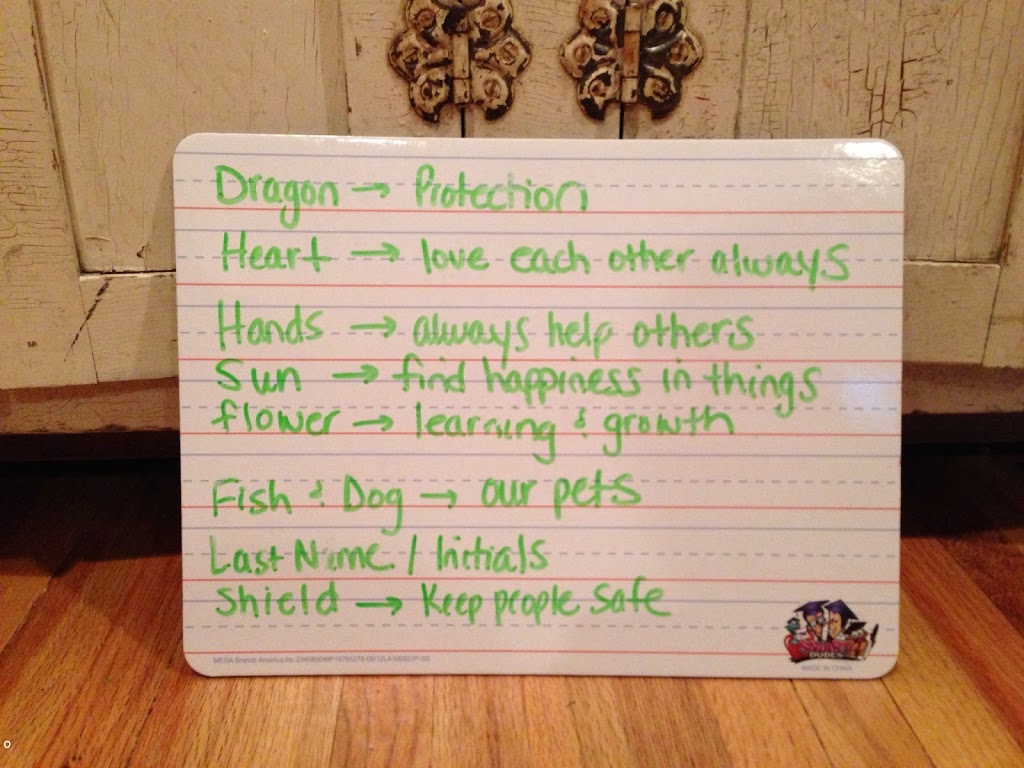 Dragon → Protection
Heart → love each other always
Hands → always help others
Sun → find happiness in things
flower → learning & growth
Fish & Dog → our pets
Last Name / Initials
Shield → Keep people safe
DUDES
MADE IN CHINA